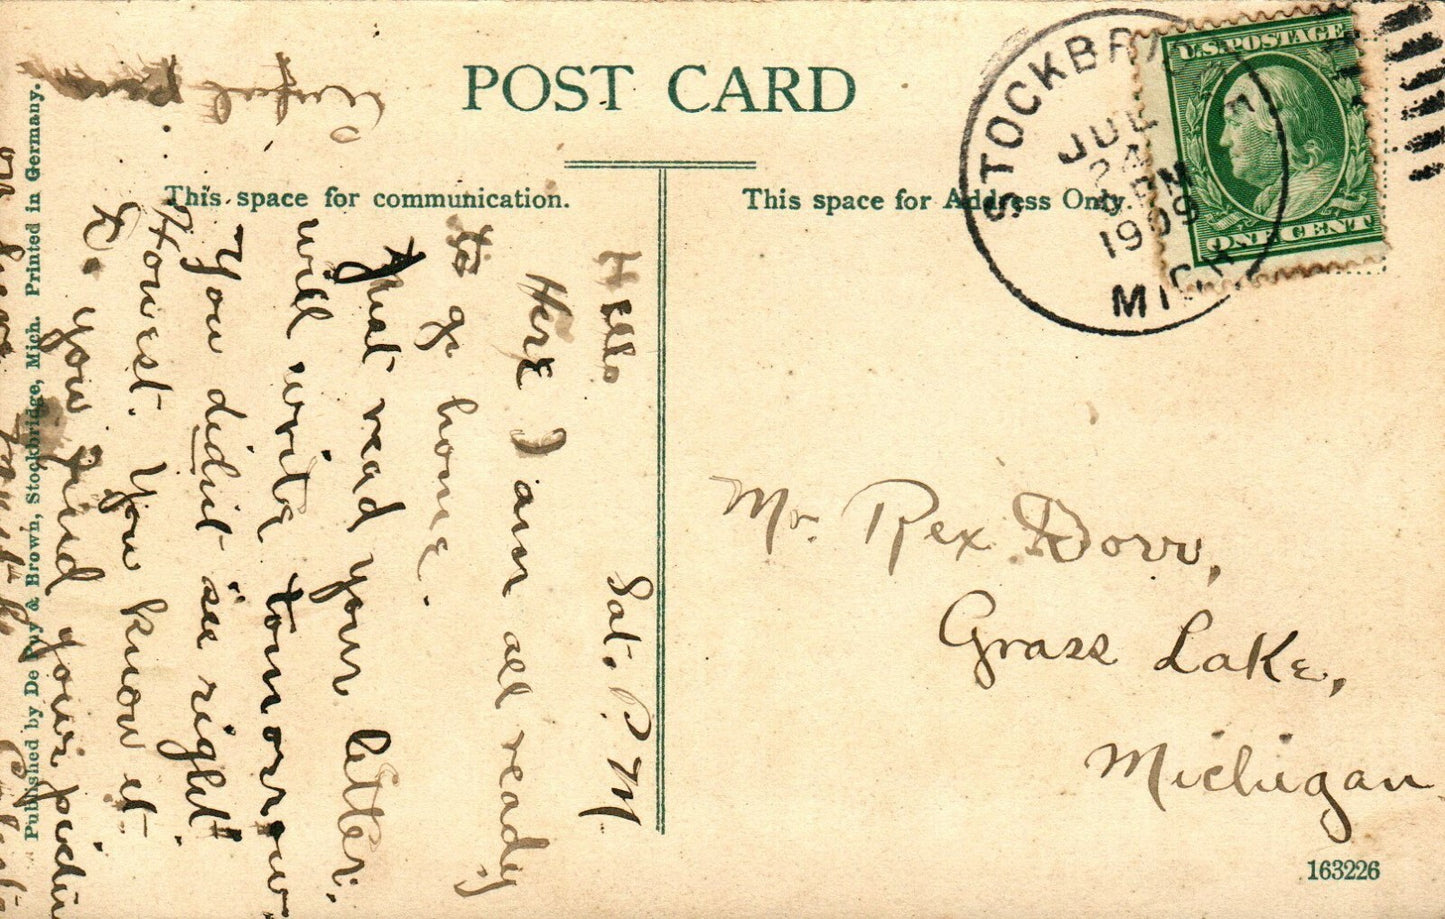 POST CARD
This space for communication.
This space for Address Only.
STOCKBRIDGE
JUL
24
PM
1909
MICH.
U.S. POSTAGE
ONE CENT
Hello Sat. P.M
Here I am all ready
to go home.
Just read your letter.
will write tomorrow.
You didn't see right
Honest. You know it
Do you find your pictu
Mr Rex Dorr,
Grass Lake,
Michigan.
163226
Published by De Puy & Brown, Stockbridge, Mich. Printed in Germany.